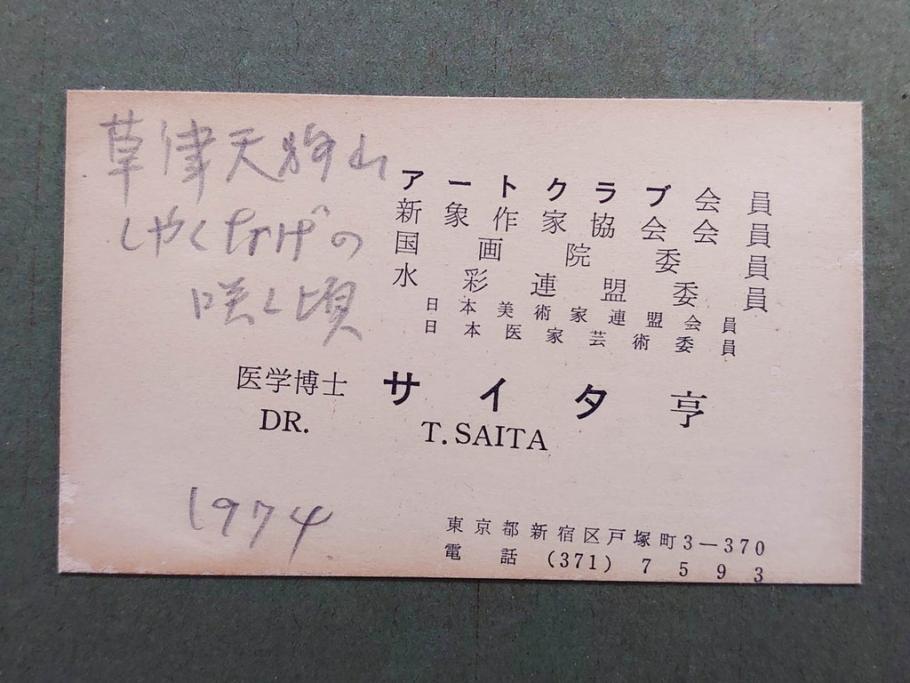 草津天狗山
しやくなげの
咲く頃
アートクラブ会員
新象作家協会会員
国画院委員
水彩連盟委員
日本美術家連盟会員
日本医家芸術委員
医学博士 サイタ 亨
DR. T. SAITA
1974
東京都新宿区戸塚町3—370
電話 (371) 7593